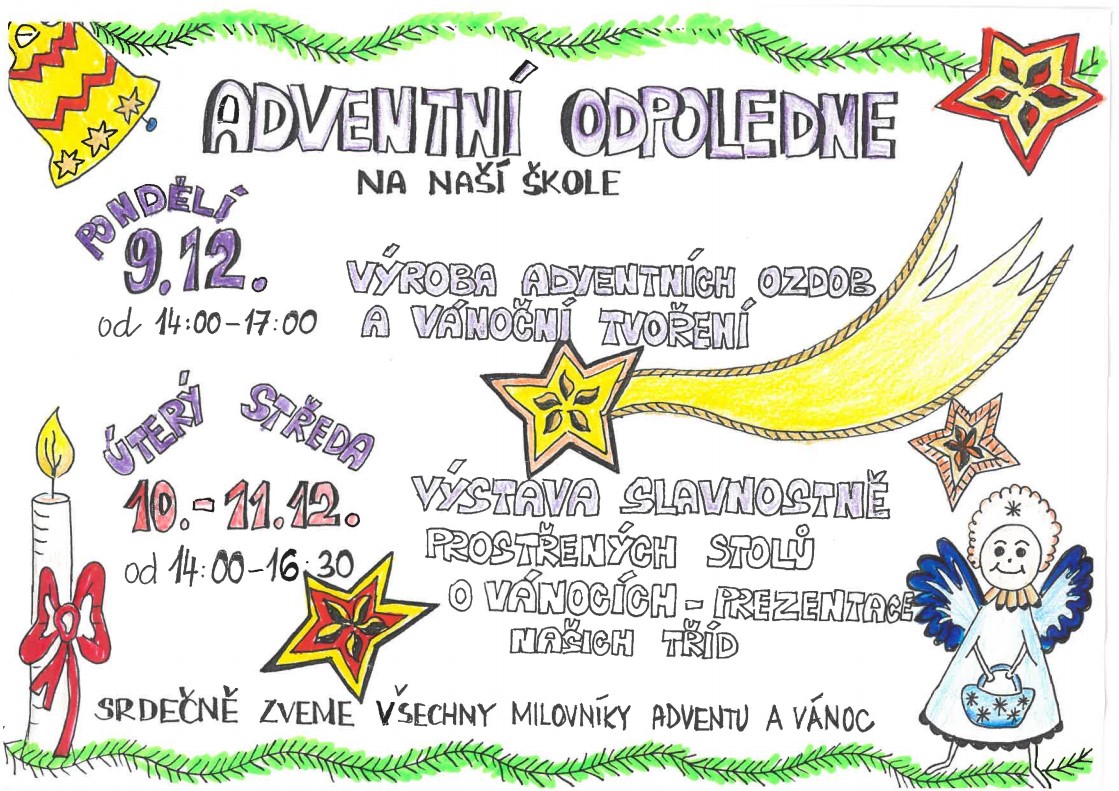 ADVENTNÍ ODPOLEDNE
NA NAŠÍ ŠKOLE
PONDĚLÍ
9.12.
od 14:00-17:00
VÝROBA ADVENTNÍCH OZDOB
A VÁNOČNÍ TVOŘENÍ
ÚTERÝ STŘEDA
10.-11.12.
od 14:00-16:30
VÝSTAVA SLAVNOSTNĚ
PROSTŘENÝCH STOLŮ
O VÁNOCÍCH - PREZENTACE
NAŠICH TŘÍD
SRDEČNĚ ZVEME VŠECHNY MILOVNÍKY ADVENTU A VÁNOC